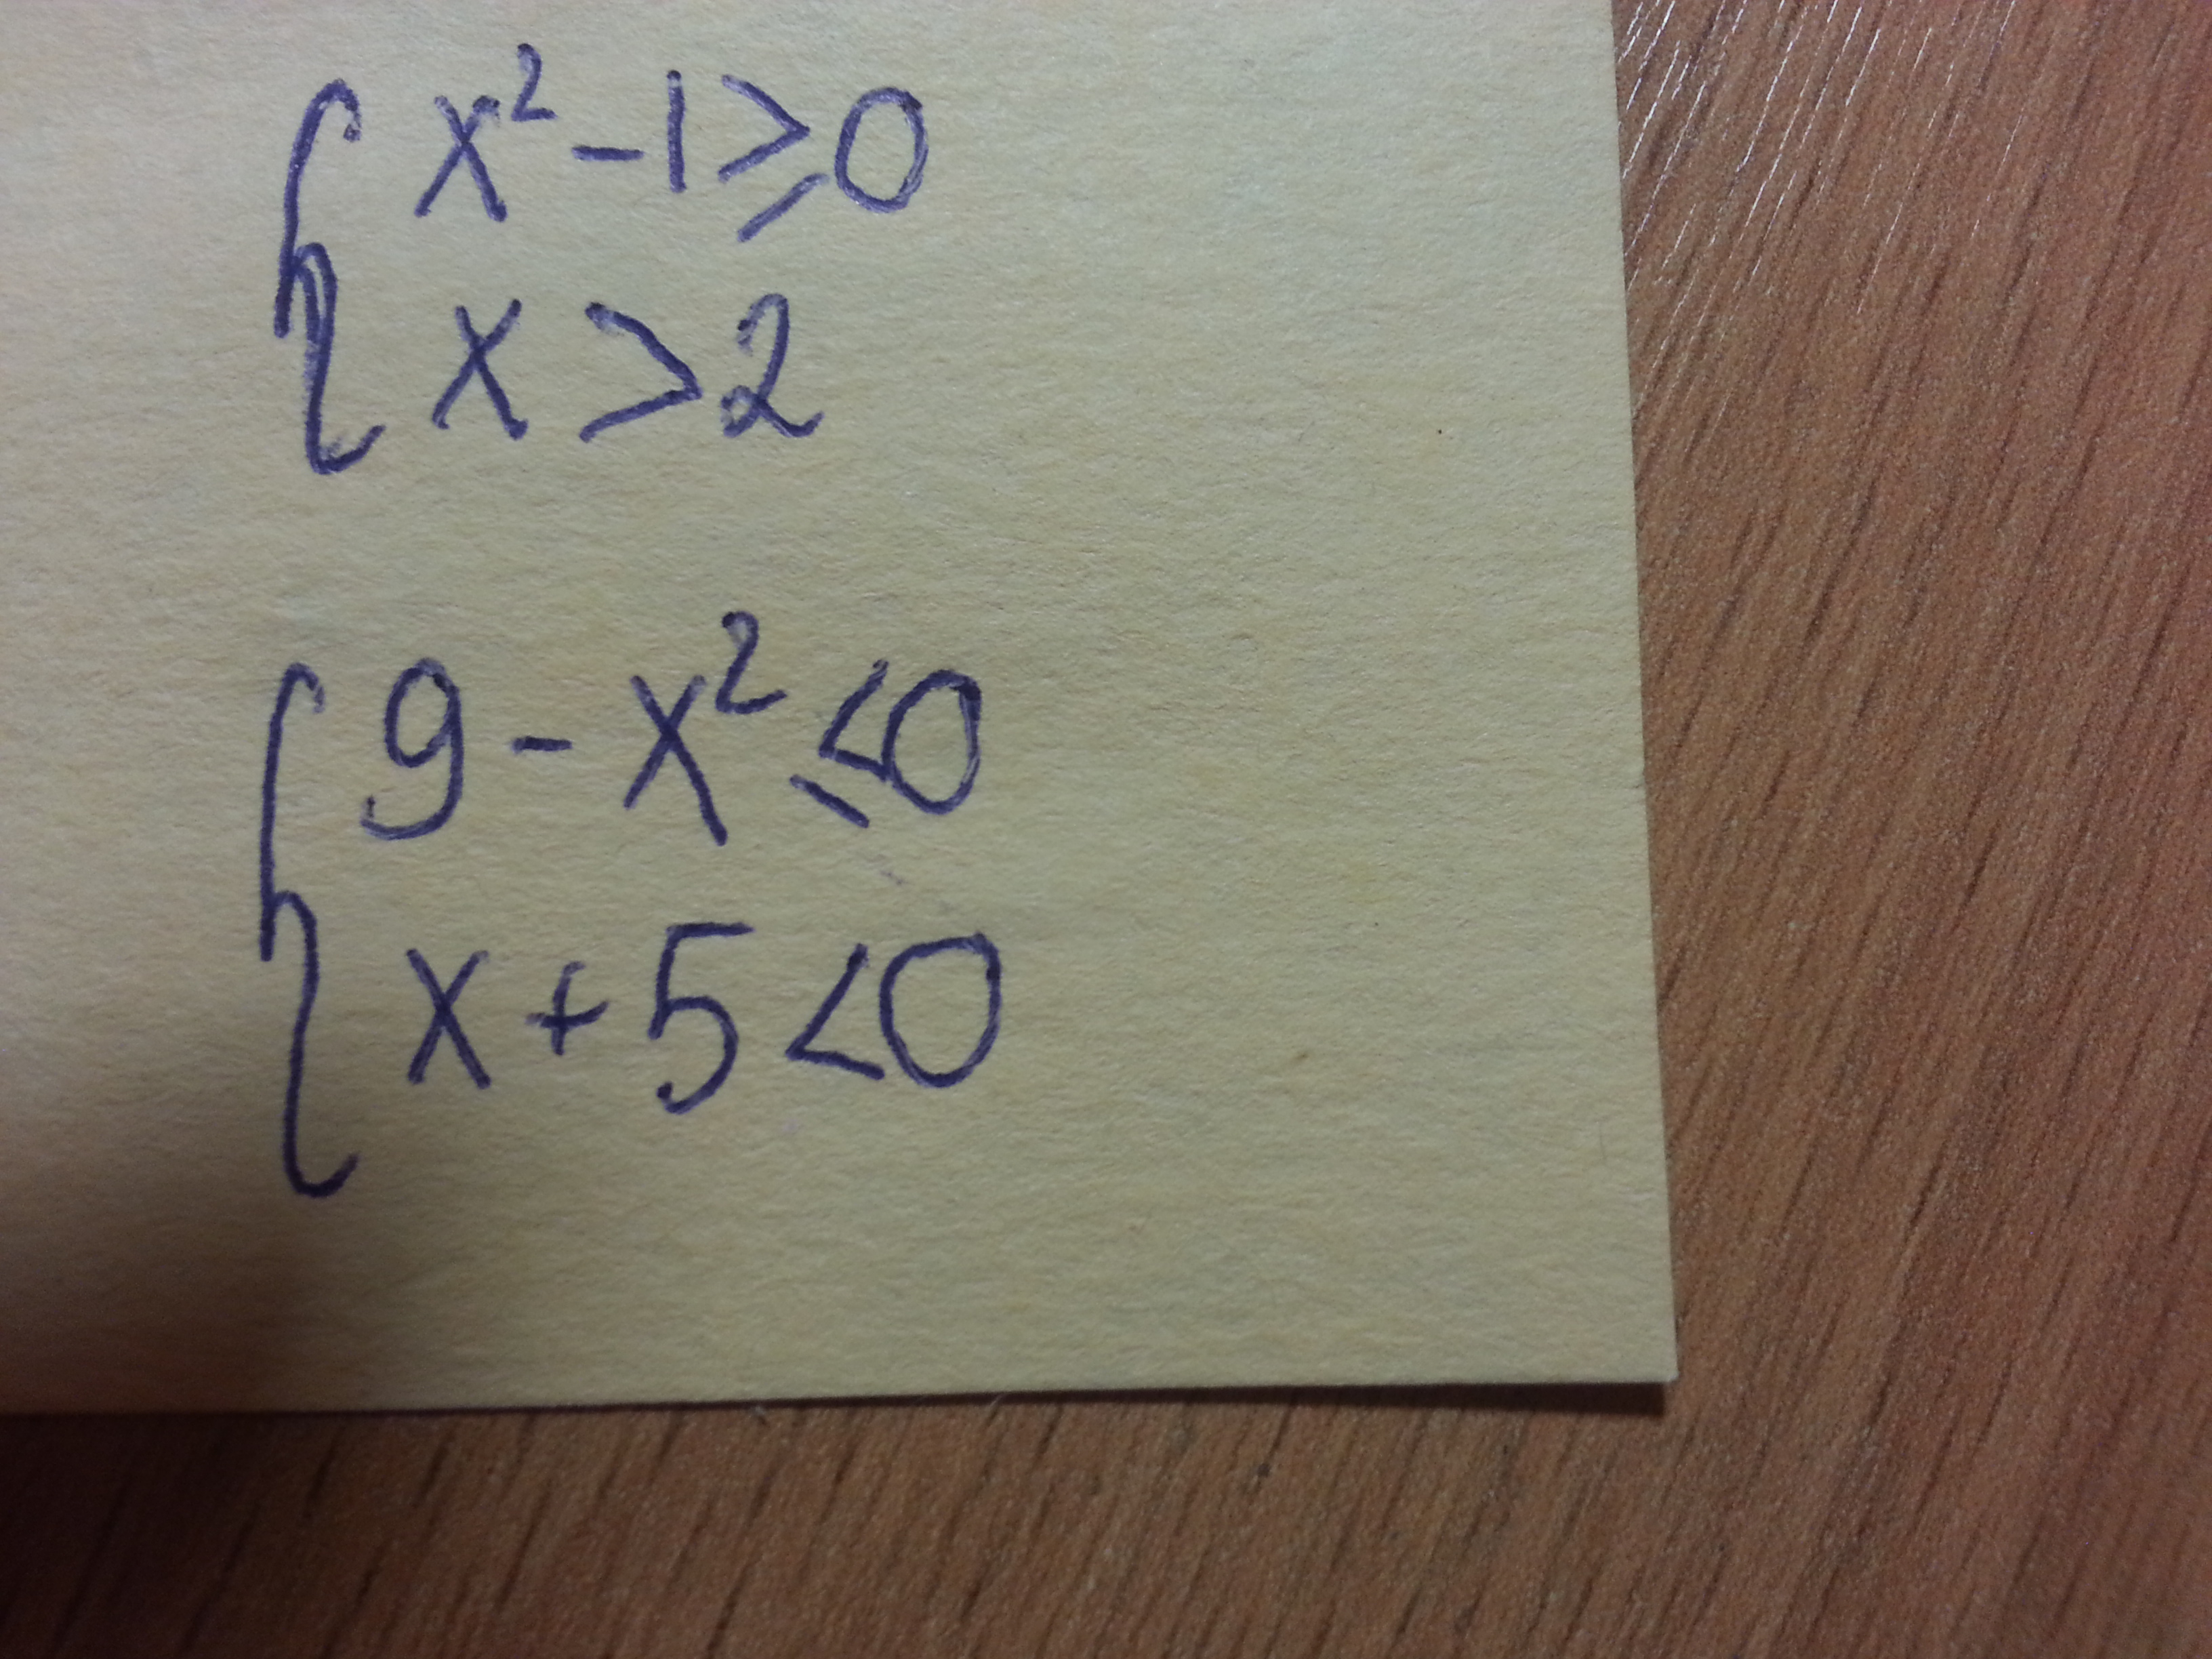 { x² - 1 ⩾ 0
x > 2
{ 9 - x² ⩽ 0
x + 5 < 0